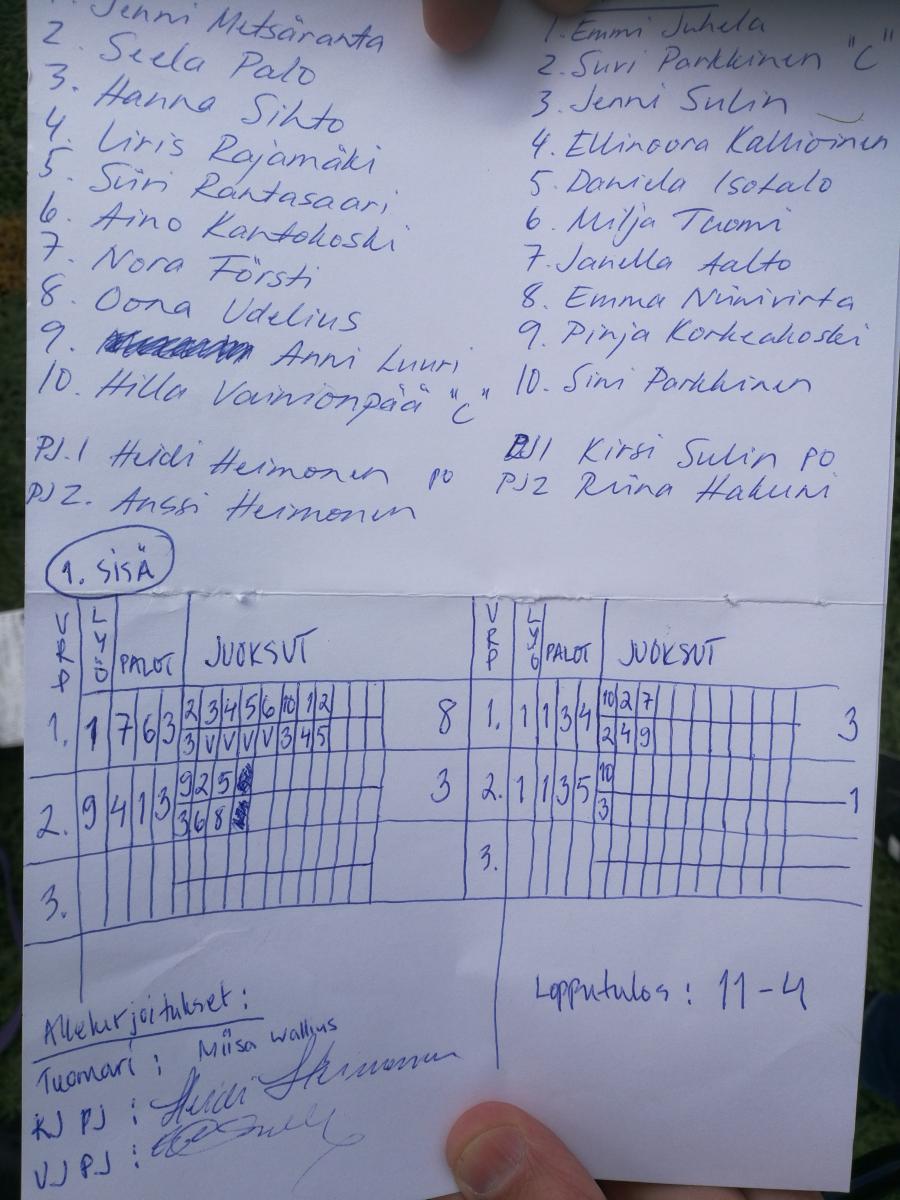 1. Jenni Metsäranta
2. Seela Palo
3. Hanna Sihto
4. Liris Rajamäki
5. Siiri Rantasaari
6. Aino Kantokoski
7. Nora Försti
8. Oona Udelius
9. Anni Luuri
10. Hilla Vainionpää "C"
PJ.1 Heidi Heimonen po
PJ2. Anssi Heimonen
1. Emmi Juhela
2. Suri Parkkinen "C"
3. Jenni Sulin
4. Ellinoora Kallioinen
5. Daniela Isotalo
6. Milja Tuomi
7. Janella Aalto
8. Emma Niinivirta
9. Pinja Korkeakoski
10. Sini Parkkinen
PJ1 Kirsi Sulin po
PJ2 Riina Hakuni
1. SISÄ
VRP LYÖ PALOT JUOKSUT
1. 1 7 6 3 2 3 4 5 6 10 1 2 8
3 V V V V 3 4 5
2. 9 4 1 3 9 2 5 3
3 6 8
3.
VRP LYÖ PALOT JUOKSUT
1. 1 1 3 4 10 2 7 3
2 4 9
2. 1 1 3 5 10 1
3
3.
Lopputulos : 11-4
Allekirjoitukset :
Tuomari : Miisa Wallius
KJ PJ : Heidi Heimonen
VJ PJ :